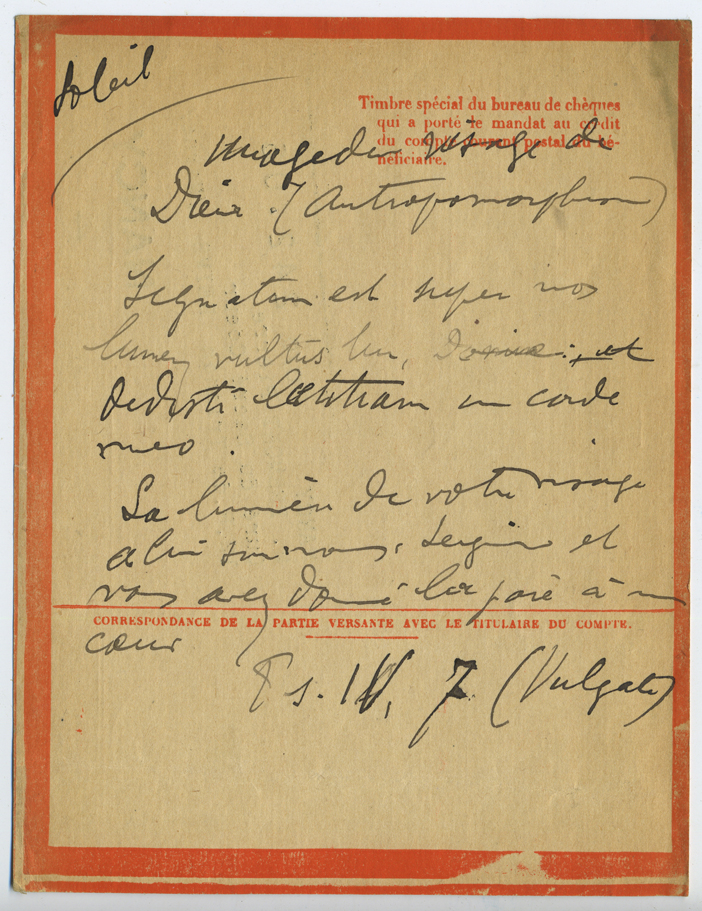 Soleil
Timbre spécial du bureau de chèques
qui a porté le mandat au crédit
du compte courant postal du bé-
néficiaire.
Image du visage de
Dieu. (Antropomorphism)
Signatum est super nos
lumen vultus tui, Domine : et
dedisti laetitiam in corde
meo.
La lumière de votre visage
a lui sur nous, Seigneur et
vous avez donné la joie à mon
CORRESPONDANCE DE LA PARTIE VERSANTE AVEC LE TITULAIRE DU COMPTE.
cœur
Ps. IV, 7. (Vulgate)